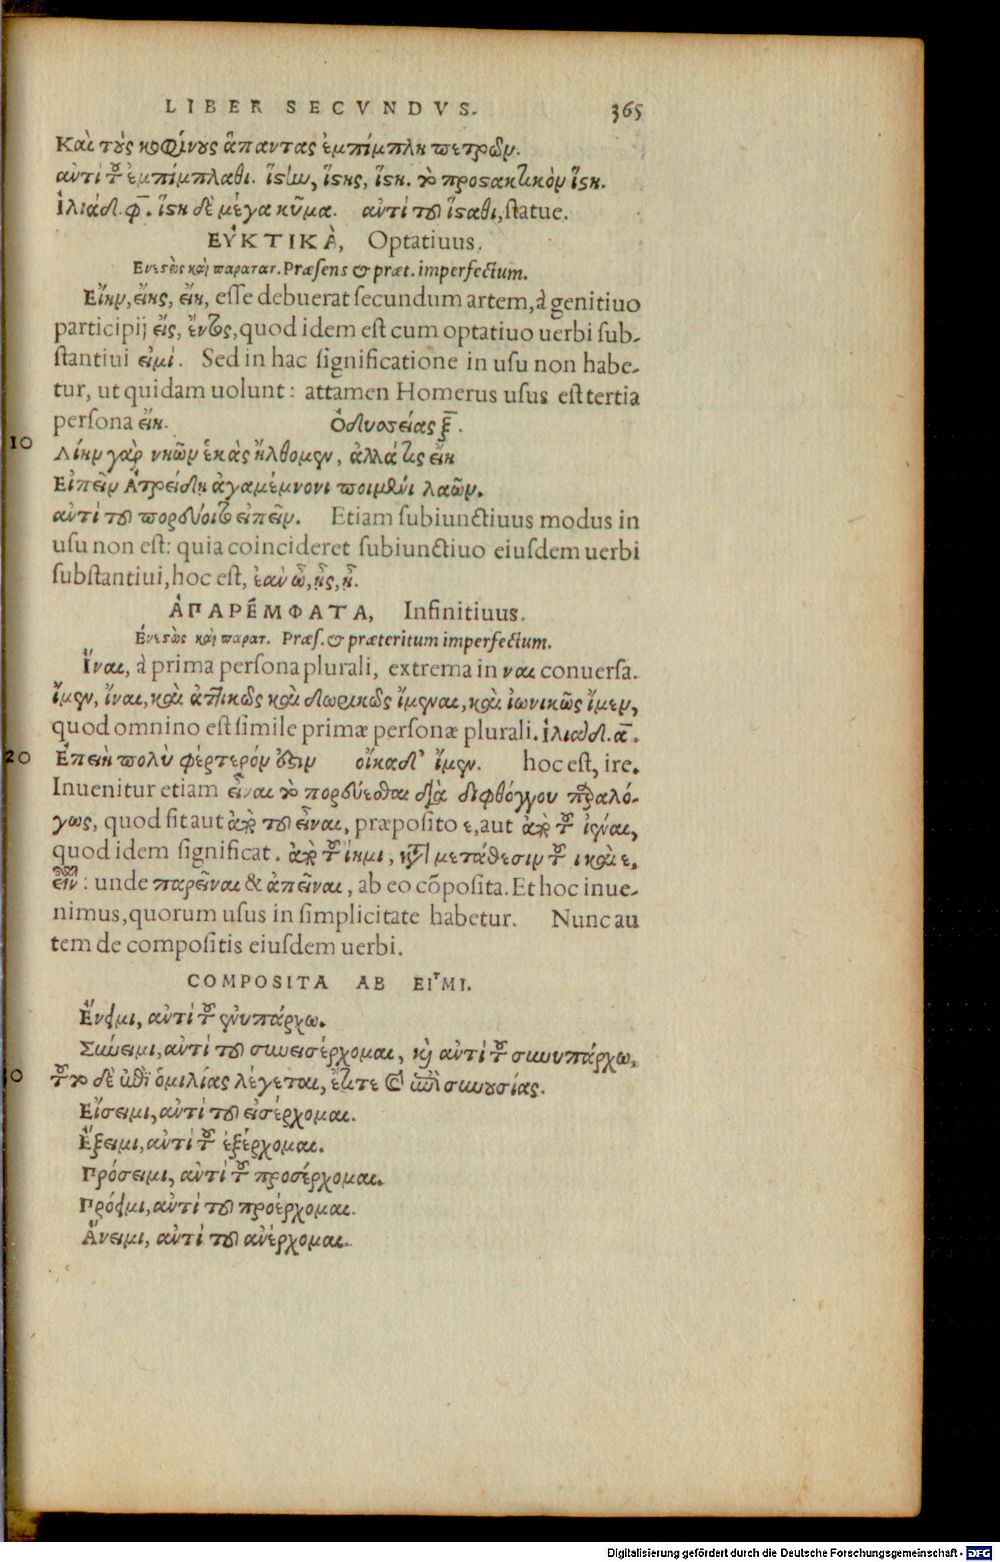 LIBER SECVNDVS. 365
Καὶ τοὺς κοφίνους ἅπαντας ἐμπίμπλη πετρῶν.
ἀντὶ τοῦ ἐμπίμπλαθι. ἵστω, ἵστης, ἵστη. τὸ προστακτικὸν ἵστη.
Ἰλιάδ. φ̄. ἵστη δὲ μέγα κῦμα. ἀντὶ τοῦ ἵσταθι, statue.
ΕΥ̓ΚΤΙΚᾺ, Optatiuus.
Ενεστὼς καὶ παρατατ. Præsens & præt. imperfectum.
Εἴην, εἴης, εἴη, esse debuerat secundum artem, à genitiuo
participij εἲς, ἔντος, quod idem est cum optatiuo uerbi sub-
stantiui εἰμί. Sed in hac significatione in usu non habe-
tur, ut quidam uolunt: attamen Homerus usus est tertia
persona εἴη. Ὀδυσσείας ξ̄.
10
Λίην γὰρ νηῶν ἑκὰς ἤλθομεν, ἀλλά τις εἴη
Εἰπεῖν Ἀτρείδῃ ἀγαμέμνονι ποιμένι λαῶν.
ἀντὶ τοῦ πορεύοιτο εἰπεῖν. Etiam subiunctiuus modus in
usu non est: quia coincideret subiunctiuo eiusdem uerbi
substantiui, hoc est, ἐὰν ὦ, ᾖς, ᾖ.
ἈΠΑΡΈΜΦΑΤΑ, Infinitiuus.
Ἐνεστὼς καὶ παρατ. Præs. & præteritum imperfectum.
Ἴναι, à prima persona plurali, extrema in ναι conuersa.
ἴμεν, ἴναι, καὶ ἀττικῶς καὶ δωρικῶς ἴμεναι, καὶ ἰωνικῶς ἴμεν,
quod omnino est simile primæ personæ plurali. Ἰλιάδ. ᾱ.
20
Ἐπειὴ πολὺ φέρτερόν ἐστιν οἴκαδ' ἴμεν. hoc est, ire.
Inuenitur etiam εἶναι τὸ πορεύεσθαι διὰ διφθόγγου παραλό-
γως, quod fit aut ἀπὸ τοῦ εἶναι, præposito ε, aut ἀπὸ τοῦ ἰέναι,
quod idem significat. ἀπὸ τοῦ ἵημι, κατὰ μετάθεσιν τοῦ ι καὶ ε.
εἶν: unde παρεῖναι & ἀπεῖναι, ab eo cōposita. Et hoc inue-
nimus, quorum usus in simplicitate habetur. Nunc au
tem de compositis eiusdem uerbi.
COMPOSITA AB ΕἸΜΙ.
Ἔνειμι, ἀντὶ τοῦ ἐνυπάρχω.
Σύνειμι, ἀντὶ τοῦ συνεισέρχομαι, καὶ ἀντὶ τοῦ συνυπάρχω,
τοῦτο δὲ ἐπὶ ὁμιλίας λέγεται, ἔστε καὶ ἐπὶ συνουσίας.
Εἴσειμι, ἀντὶ τοῦ εἰσέρχομαι.
Ἔξειμι, ἀντὶ τοῦ ἐξέρχομαι.
Πρόσειμι, ἀντὶ τοῦ προσέρχομαι.
Πρόειμι, ἀντὶ τοῦ προέρχομαι.
Ἄνειμι, ἀντὶ τοῦ ἀνέρχομαι.
Digitalisierung gefördert durch die Deutsche Forschungsgemeinschaft - DFG